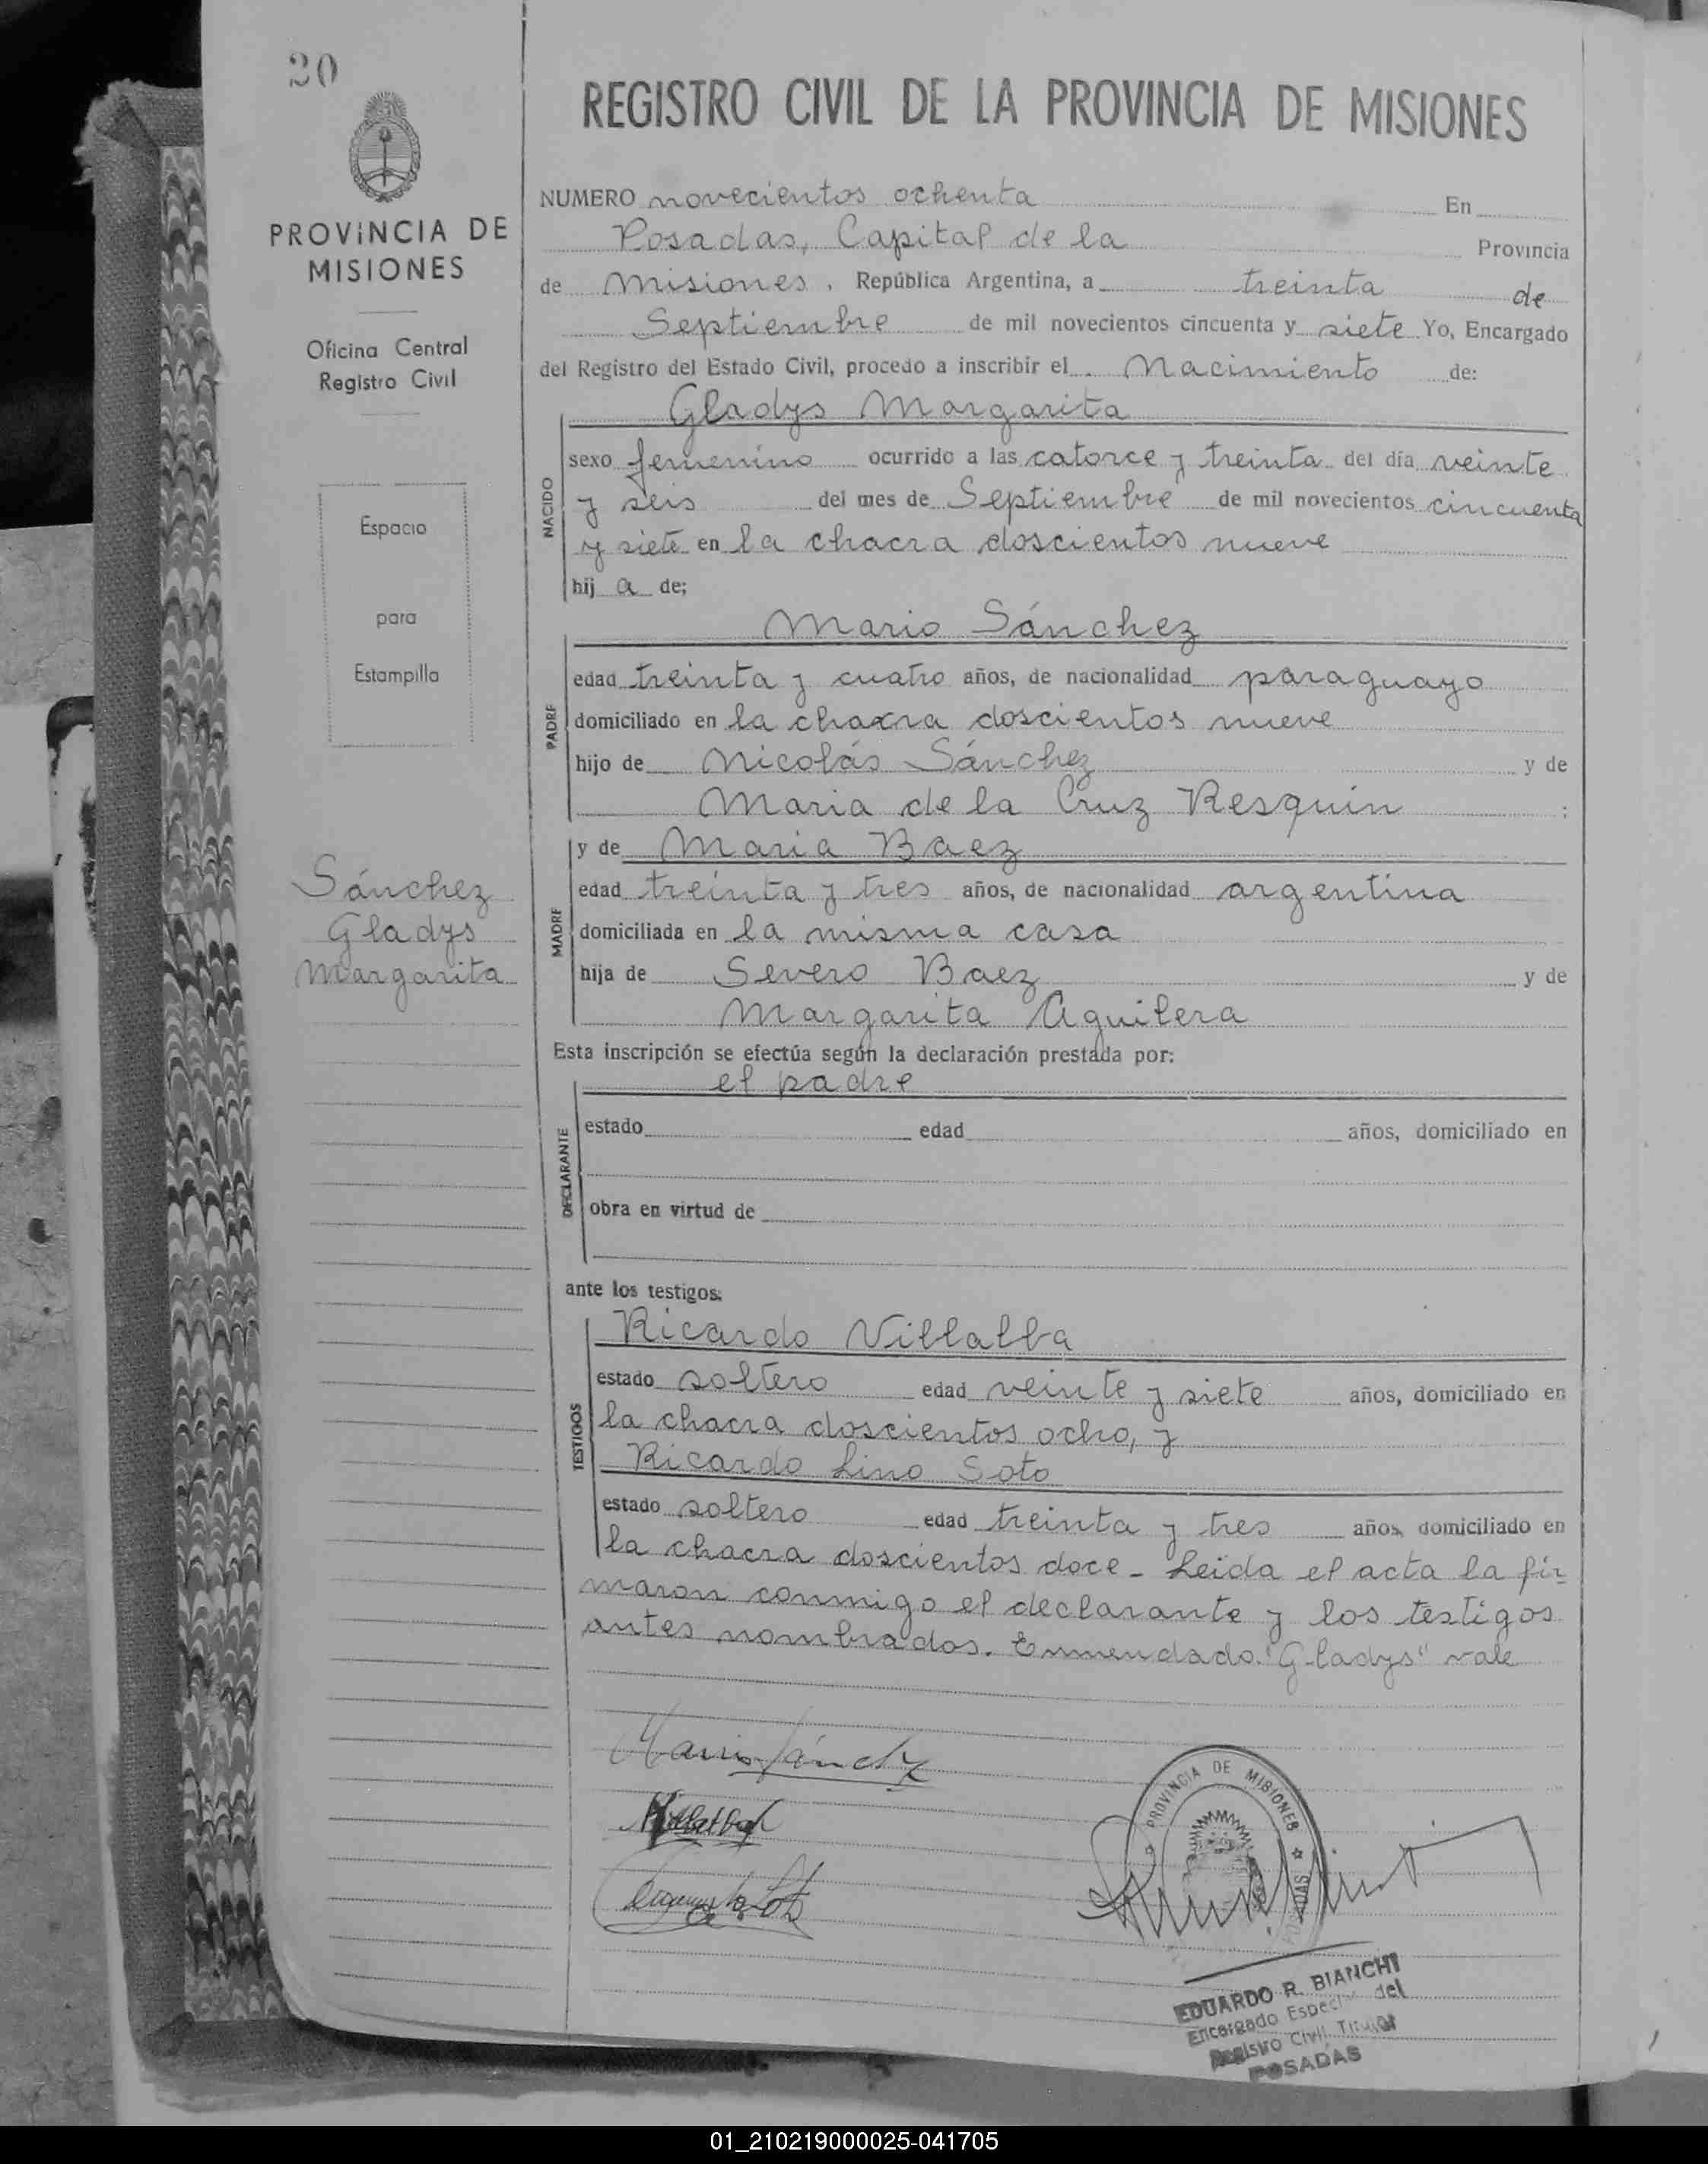 20
REGISTRO CIVIL DE LA PROVINCIA DE MISIONES
PROVINCIA DE
MISIONES
Oficina Central
Registro Civil
Espacio
para
Estampilla
Sánchez
Gladys
Margarita
NUMERO novecientos ochenta En
Posadas, Capital de la Provincia
de Misiones, República Argentina, a treinta de
Septiembre de mil novecientos cincuenta y siete Yo, Encargado
del Registro del Estado Civil, procedo a inscribir el Nacimiento de:
Gladys Margarita
NACIDO
sexo femenino ocurrido a las catorce y treinta del día veinte
y seis del mes de Septiembre de mil novecientos cincuenta
y siete en la chacra doscientos nueve
hij a de;
Mario Sánchez
PADRE
edad treinta y cuatro años, de nacionalidad paraguayo
domiciliado en la chacra doscientos nueve
hijo de Nicolás Sánchez y de
Maria de la Cruz Resquin :
y de Maria Baez
MADRE
edad treinta y tres años, de nacionalidad argentina
domiciliada en la misma casa
hija de Severo Baez y de
Margarita Aguilera
Esta inscripción se efectúa según la declaración prestada por:
el padre
DECLARANTE
estado edad años, domiciliado en
obra en virtud de
ante los testigos:
Ricardo Villalba
TESTIGOS
estado soltero edad veinte y siete años, domiciliado en
la chacra doscientos ocho, y
Ricardo Lino Soto
estado soltero edad treinta y tres años, domiciliado en
la chacra doscientos doce - Leida el acta la fir-
maron conmigo el declarante y los testigos
antes nombrados. Enmendado: "Gladys" vale
Mario Sánchez
Villalba
Soto
PROVINCIA DE MISIONES
POSADAS
EDUARDO R. BIANCHI
Encargado Especial del
Registro Civil Titular
POSADAS
01_210219000025-041705